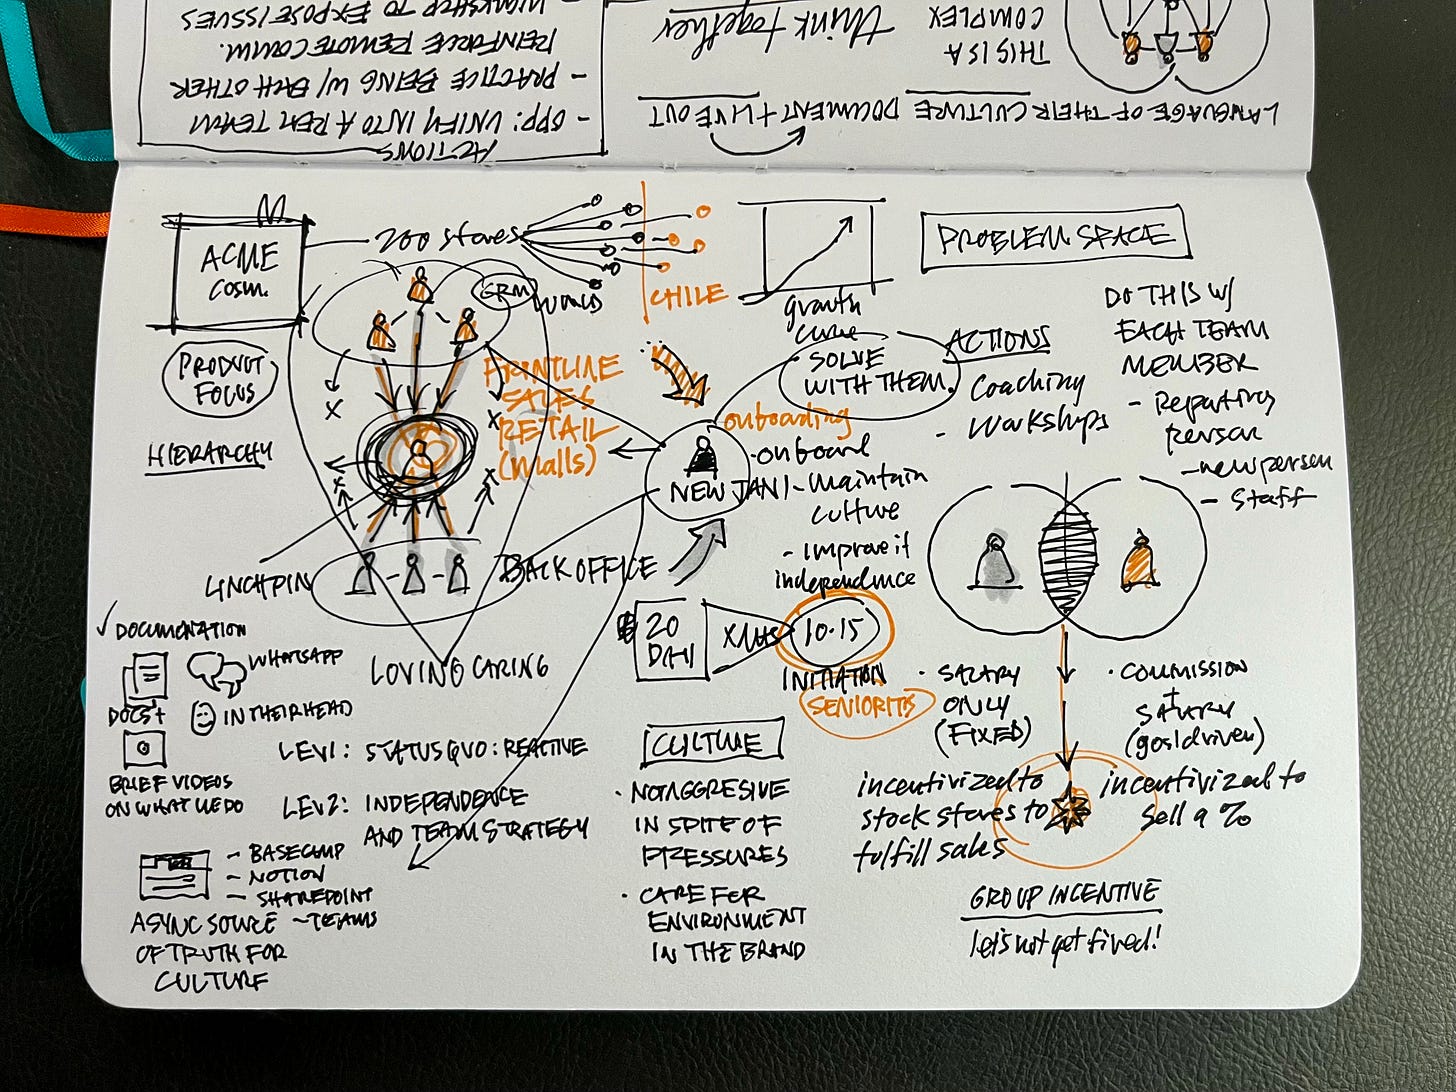 ACTIONS
- OPP: UNIFY INTO A REM TEAM
- PRACTICE BEING W/ EACH OTHER
REINFORCE REMOTE COMM.
- WORKSHOP TO EXPOSE ISSUES
LANGUAGE OF THEIR CULTURE DOCUMENT + LIVE OUT
THIS IS A
COMPLEX
think together
ACME
COSM.
200 stores
WORLD
CHILE
growth
curve
PROBLEM SPACE
PRODUCT
FOCUS
GRM
HIERARCHY
FRONTLINE
SALES
RETAIL
(malls)
LINCHPIN
BACK OFFICE
LOVING CARING
SOLVE
WITH THEM.
ACTIONS
- Coaching
- Workshops
DO THIS W/
EACH TEAM
MEMBER
- Reporting
person
- new person
- Staff
onboarding
NEW JAN 1
- onboard
- maintain
culture
- improve if
independence
20
DAY
XMAS
10-15
INITIATION
SENIORITIS
✓ DOCUMENTATION
DOCS +
WHATSAPP
IN THEIR HEAD
BRIEF VIDEOS
ON WHAT WE DO
- BASECAMP
- NOTION
- SHAREPOINT
- TEAMS
ASYNC SOURCE
OF TRUTH FOR
CULTURE
LEV1: STATUS QUO: REACTIVE
LEV2: INDEPENDENCE
AND TEAM STRATEGY
CULTURE
· NOT AGGRESIVE
IN SPITE OF
PRESSURES
· CARE FOR
ENVIRONMENT
IN THE BRAND
· SALARY
ONLY
(FIXED)
incentivized to
stock stores to
fulfill sales
· COMMISSION
+
SALARY
(goal driven)
incentivized to
sell a %
GROUP INCENTIVE
let's not get fired!